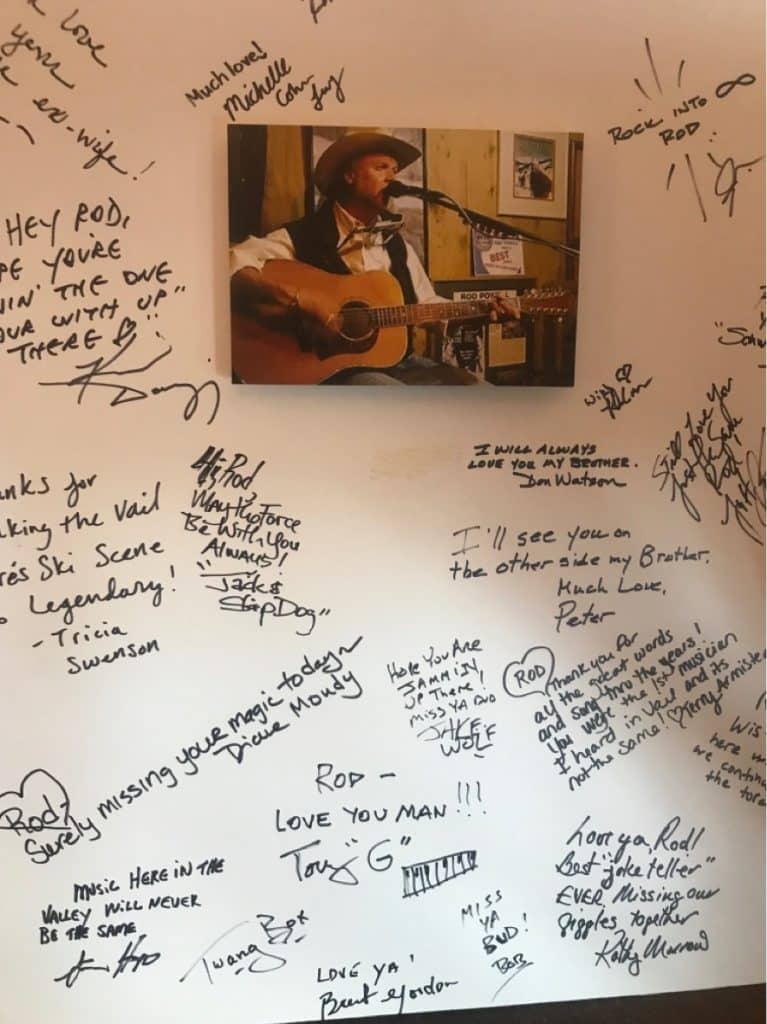 love
years
ex-wife!
Much love!
Michelle
ROCK INTO ∞
ROD
HEY ROD,
YOU'RE
THE ONE
WITH UP"
THERE ♡
BEST
with ♡
Still Love You
Just
Same
Rod!
I WILL ALWAYS
LOVE YOU MY BROTHER.
Don Watson
for
the Vail
Ski Scene
Legendary!
- Tricia
Swenson
Hi Rod
May the Force
Be With You
Always!
"Jack &
SlipDog"
I'll see you on
the other side my Brother.
Much Love,
Peter
Rod,
Surely missing your magic today~
Diane Moudy
HOPE YOU ARE
JAMMIN
UP THERE,
MISS YA BUD
JAKE
WOLF
ROD
Thank you for
all the great words
and song thru the years!
You were the 1st musician
I heard in Vail and its
not the same! ♡ Terry
here
are
the
ROD -
LOVE YOU MAN!!!
Tony "G"
MUSIC HERE IN THE
VALLEY WILL NEVER
BE THE SAME
Twang Box
LOVE YA!
Brent Gordon
MISS
YA
BUD!
BOB
Love ya, Rod!
Best "joke teller"
EVER. Missing our
giggles together
Kathy Morrow